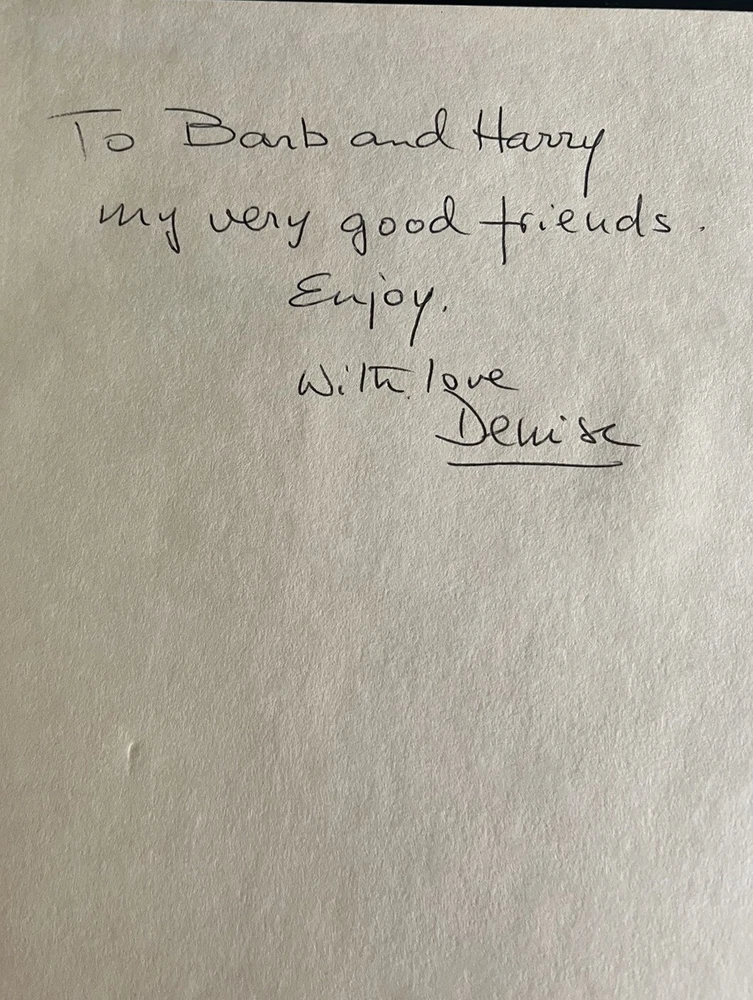 To Barb and Harry
my very good friends.
Enjoy.
With love
Denise